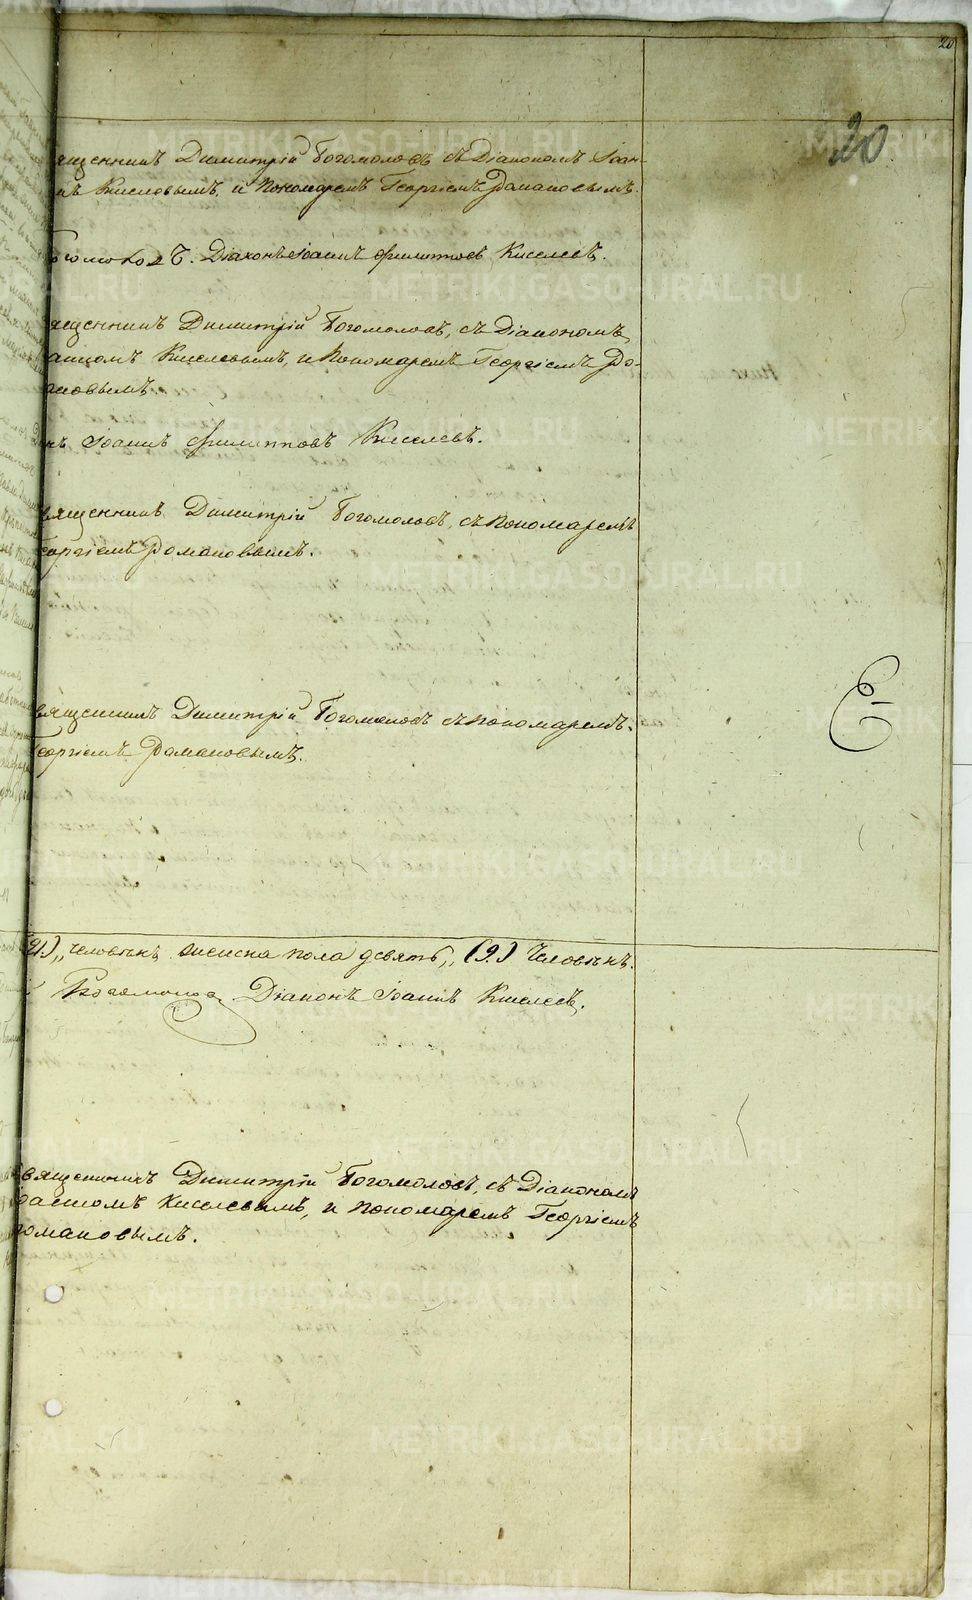 20
20
ященникъ Димитрій Богомоловъ съ Діакономъ Іоан-
Киселовымъ, и Пономаремъ Георгіемъ Romановымъ.
Діаконъ Іоаннъ Филиппов Киселевъ.
ященникъ Димитрій Богомоловъ, съ Діакономъ
анномъ Киселевымъ, и Пономаремъ Георгіемъ Ро-
ановымъ
нъ Іоаннъ Филипповъ Киселевъ.
вященникъ Димитрій Богомоловъ, съ Пономаремъ
еоргіемъ Романовымъ.
вященникъ Димитрій Богомоловъ съ пономаремъ.
еоргіемъ Романовымъ.
21.) „ человѣкъ женска пола девять „ (9.) Человѣкъ.
Богомолов Діаконъ Іоаннъ Киселевъ.
вященникъ Димитрій Богомоловъ, съ Діакономъ
оанномъ Киселевымъ, и пономаремъ Георгіемъ
омановымъ.
METRIKI.GASO-URAL.RU